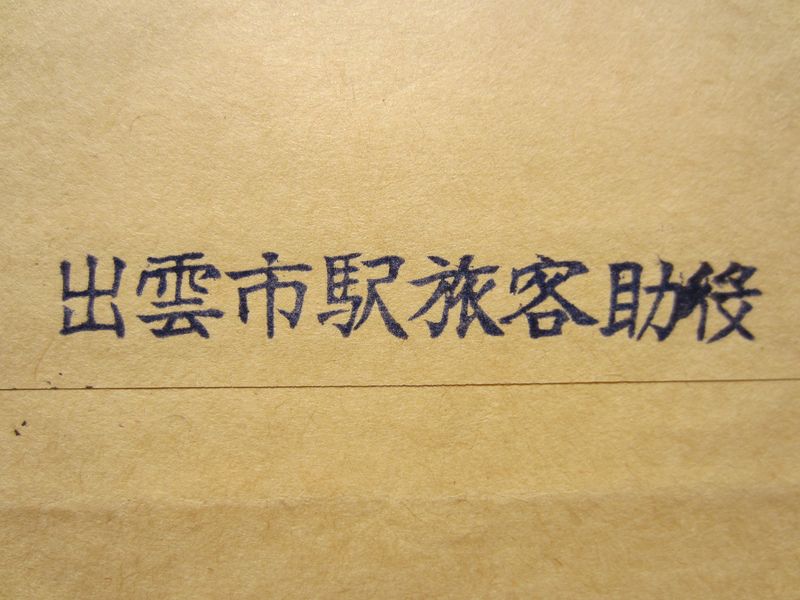 出雲市駅旅客助役